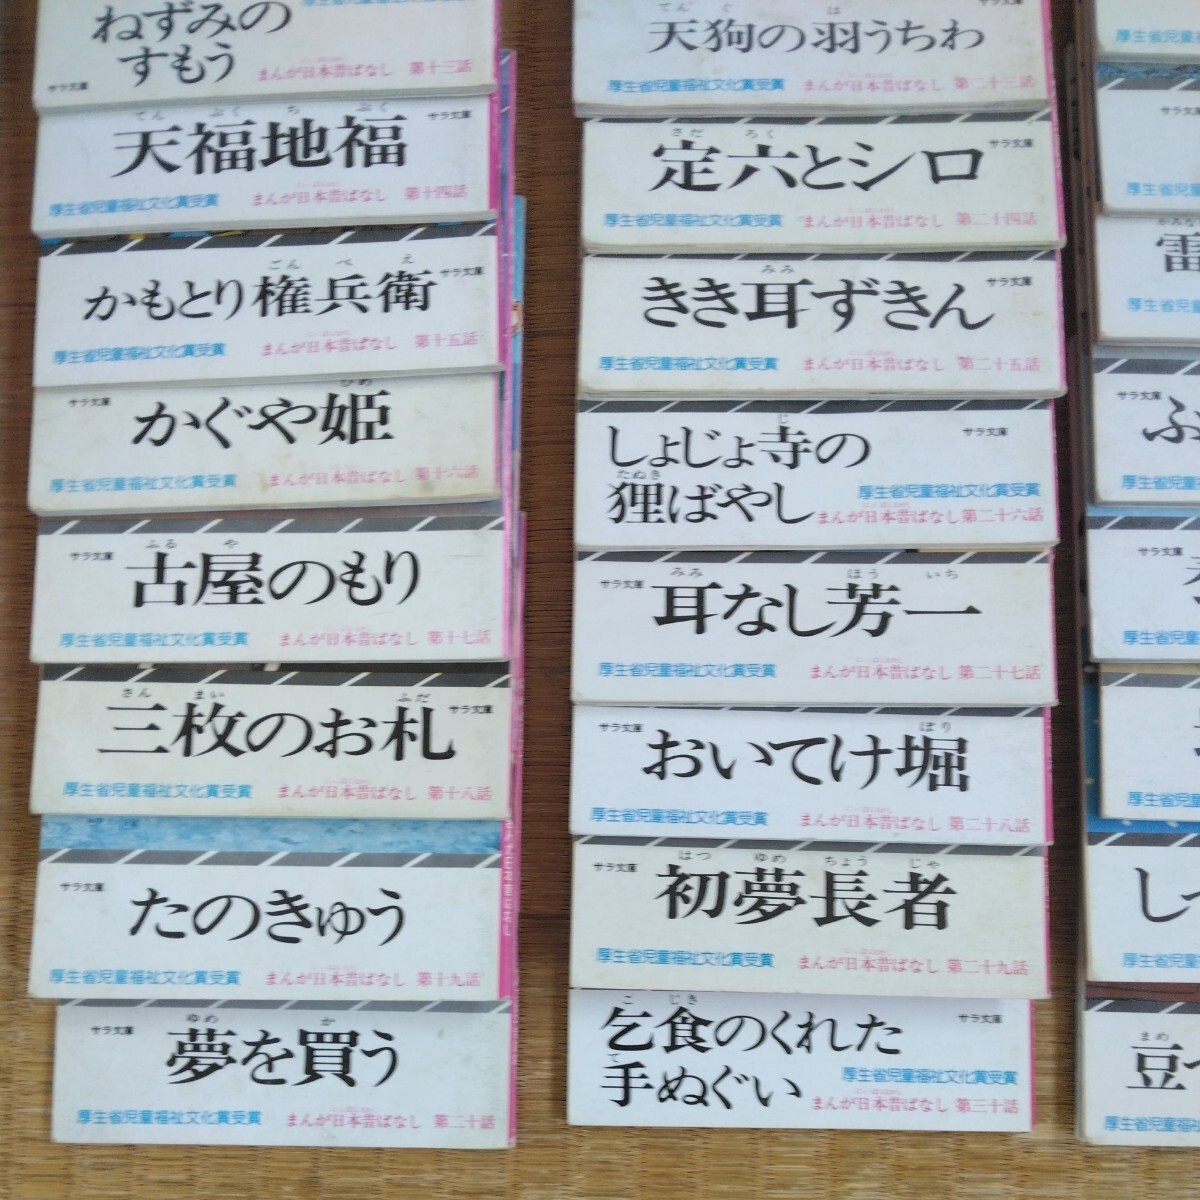 厚生省児童福祉文化賞受賞
ねずみの
すもう
サラ文庫
まんが日本昔ばなし 第十三話
てん ぷく ち ぷく
天福地福
サラ文庫
厚生省児童福祉文化賞受賞
まんが日本昔ばなし 第十四話
ごん べ え
かもとり権兵衛
サラ文庫
厚生省児童福祉文化賞受賞
まんが日本昔ばなし 第十五話
サラ文庫
ひめ
かぐや姫
厚生省児童福祉文化賞受賞
まんが日本昔ばなし 第十六話
サラ文庫
ふる や
古屋のもり
厚生省児童福祉文化賞受賞
まんが日本昔ばなし 第十七話
さん まい ふだ
三枚のお札
サラ文庫
厚生省児童福祉文化賞受賞
まんが日本昔ばなし 第十八話
サラ文庫
たのきゅう
厚生省児童福祉文化賞受賞
まんが日本昔ばなし 第十九話
サラ文庫
ゆめ か
夢を買う
厚生省児童福祉文化賞受賞
まんが日本昔ばなし 第二十話
サラ文庫
てん ぐ は
天狗の羽うちわ
厚生省児童福祉文化賞受賞
まんが日本昔ばなし 第二十三話
さだ ろく
定六とシロ
サラ文庫
厚生省児童福祉文化賞受賞
まんが日本昔ばなし 第二十四話
みみ
きき耳ずきん
サラ文庫
厚生省児童福祉文化賞受賞
まんが日本昔ばなし 第二十五話
じ
しょじょ寺の
サラ文庫
たぬき
狸ばやし
厚生省児童福祉文化賞受賞
まんが日本昔ばなし 第二十六話
サラ文庫
みみ ほう いち
耳なし芳一
厚生省児童福祉文化賞受賞
まんが日本昔ばなし 第二十七話
サラ文庫
ぼり
おいてけ堀
厚生省児童福祉文化賞受賞
まんが日本昔ばなし 第二十八話
サラ文庫
はつ ゆめ ちょう じゃ
初夢長者
厚生省児童福祉文化賞受賞
まんが日本昔ばなし 第二十九話
こ じき
乞食のくれた
サラ文庫
て
手ぬぐい
厚生省児童福祉文化賞受賞
まんが日本昔ばなし 第三十話
厚生省児童
サラ文庫
厚生省児童
かみな
雷
厚生省児童
サラ文庫
ふ
厚生省児童
サラ文庫
厚生省児童
厚生省児
し
厚生省児童
まめ
豆
厚生省児童